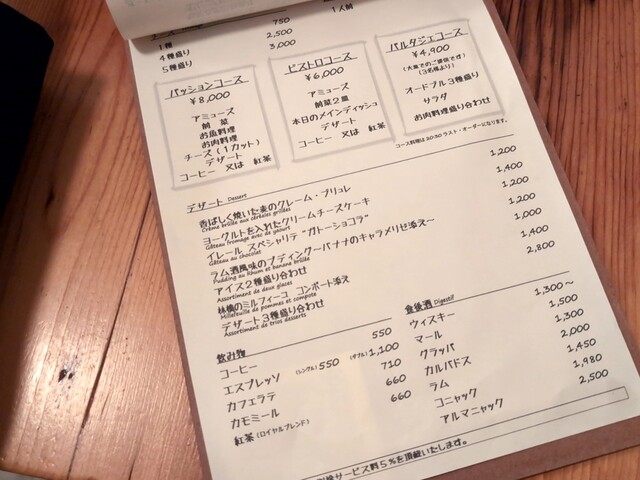 750
1種 2,500
4種盛り 3,000
5種盛り
1人前
パッションコース
¥8,000
アミューズ
前菜
お魚料理
お肉料理
チーズ(1カット)
デザート
コーヒー 又は 紅茶
ビストロコース
¥6,000
アミューズ
前菜2皿
本日のメインディッシュ
デザート
コーヒー 又は 紅茶
パルタジェコース
¥4,900
(大皿でのご提供です)
(3名様より)
オードブル3種盛り
サラダ
お肉料理盛り合わせ
コース料理は20:30ラスト・オーダーになります。
デザート Dessert
香ばしく焼いた麦のクレーム・ブリュレ 1,200
Crème brûlée aux céréales grillées
ヨーグルトを入れたクリームチーズケーキ 1,400
Gâteau fromage avec de yaourt
イレール スペシャリテ "ガトーショコラ" 1,200
Gâteau au chocolat
ラム酒風味のプディング〜バナナのキャラメリゼ添え〜 1,200
Pudding au Rhum et banane brûlée
アイス2種盛り合わせ 1,000
Assortiment de deux glaces
林檎のミルフィーユ コンポート添え 1,400
Millefeuille de pommes et compote
デザート3種盛り合わせ 2,800
Assortiment de trios desserts
飲み物
コーヒー 550
エスプレッソ (シングル)550 (ダブル)1,100
カフェラテ 710
カモミール 660
紅茶(ロイヤルブレンド) 660
食後酒 Digestif
ウィスキー 1,300〜
マール 1,500
グラッパ 1,300
カルバドス 2,000
ラム 1,450
コニャック 1,980
アルマニャック 2,500
サービス料5%を頂戴いたします。